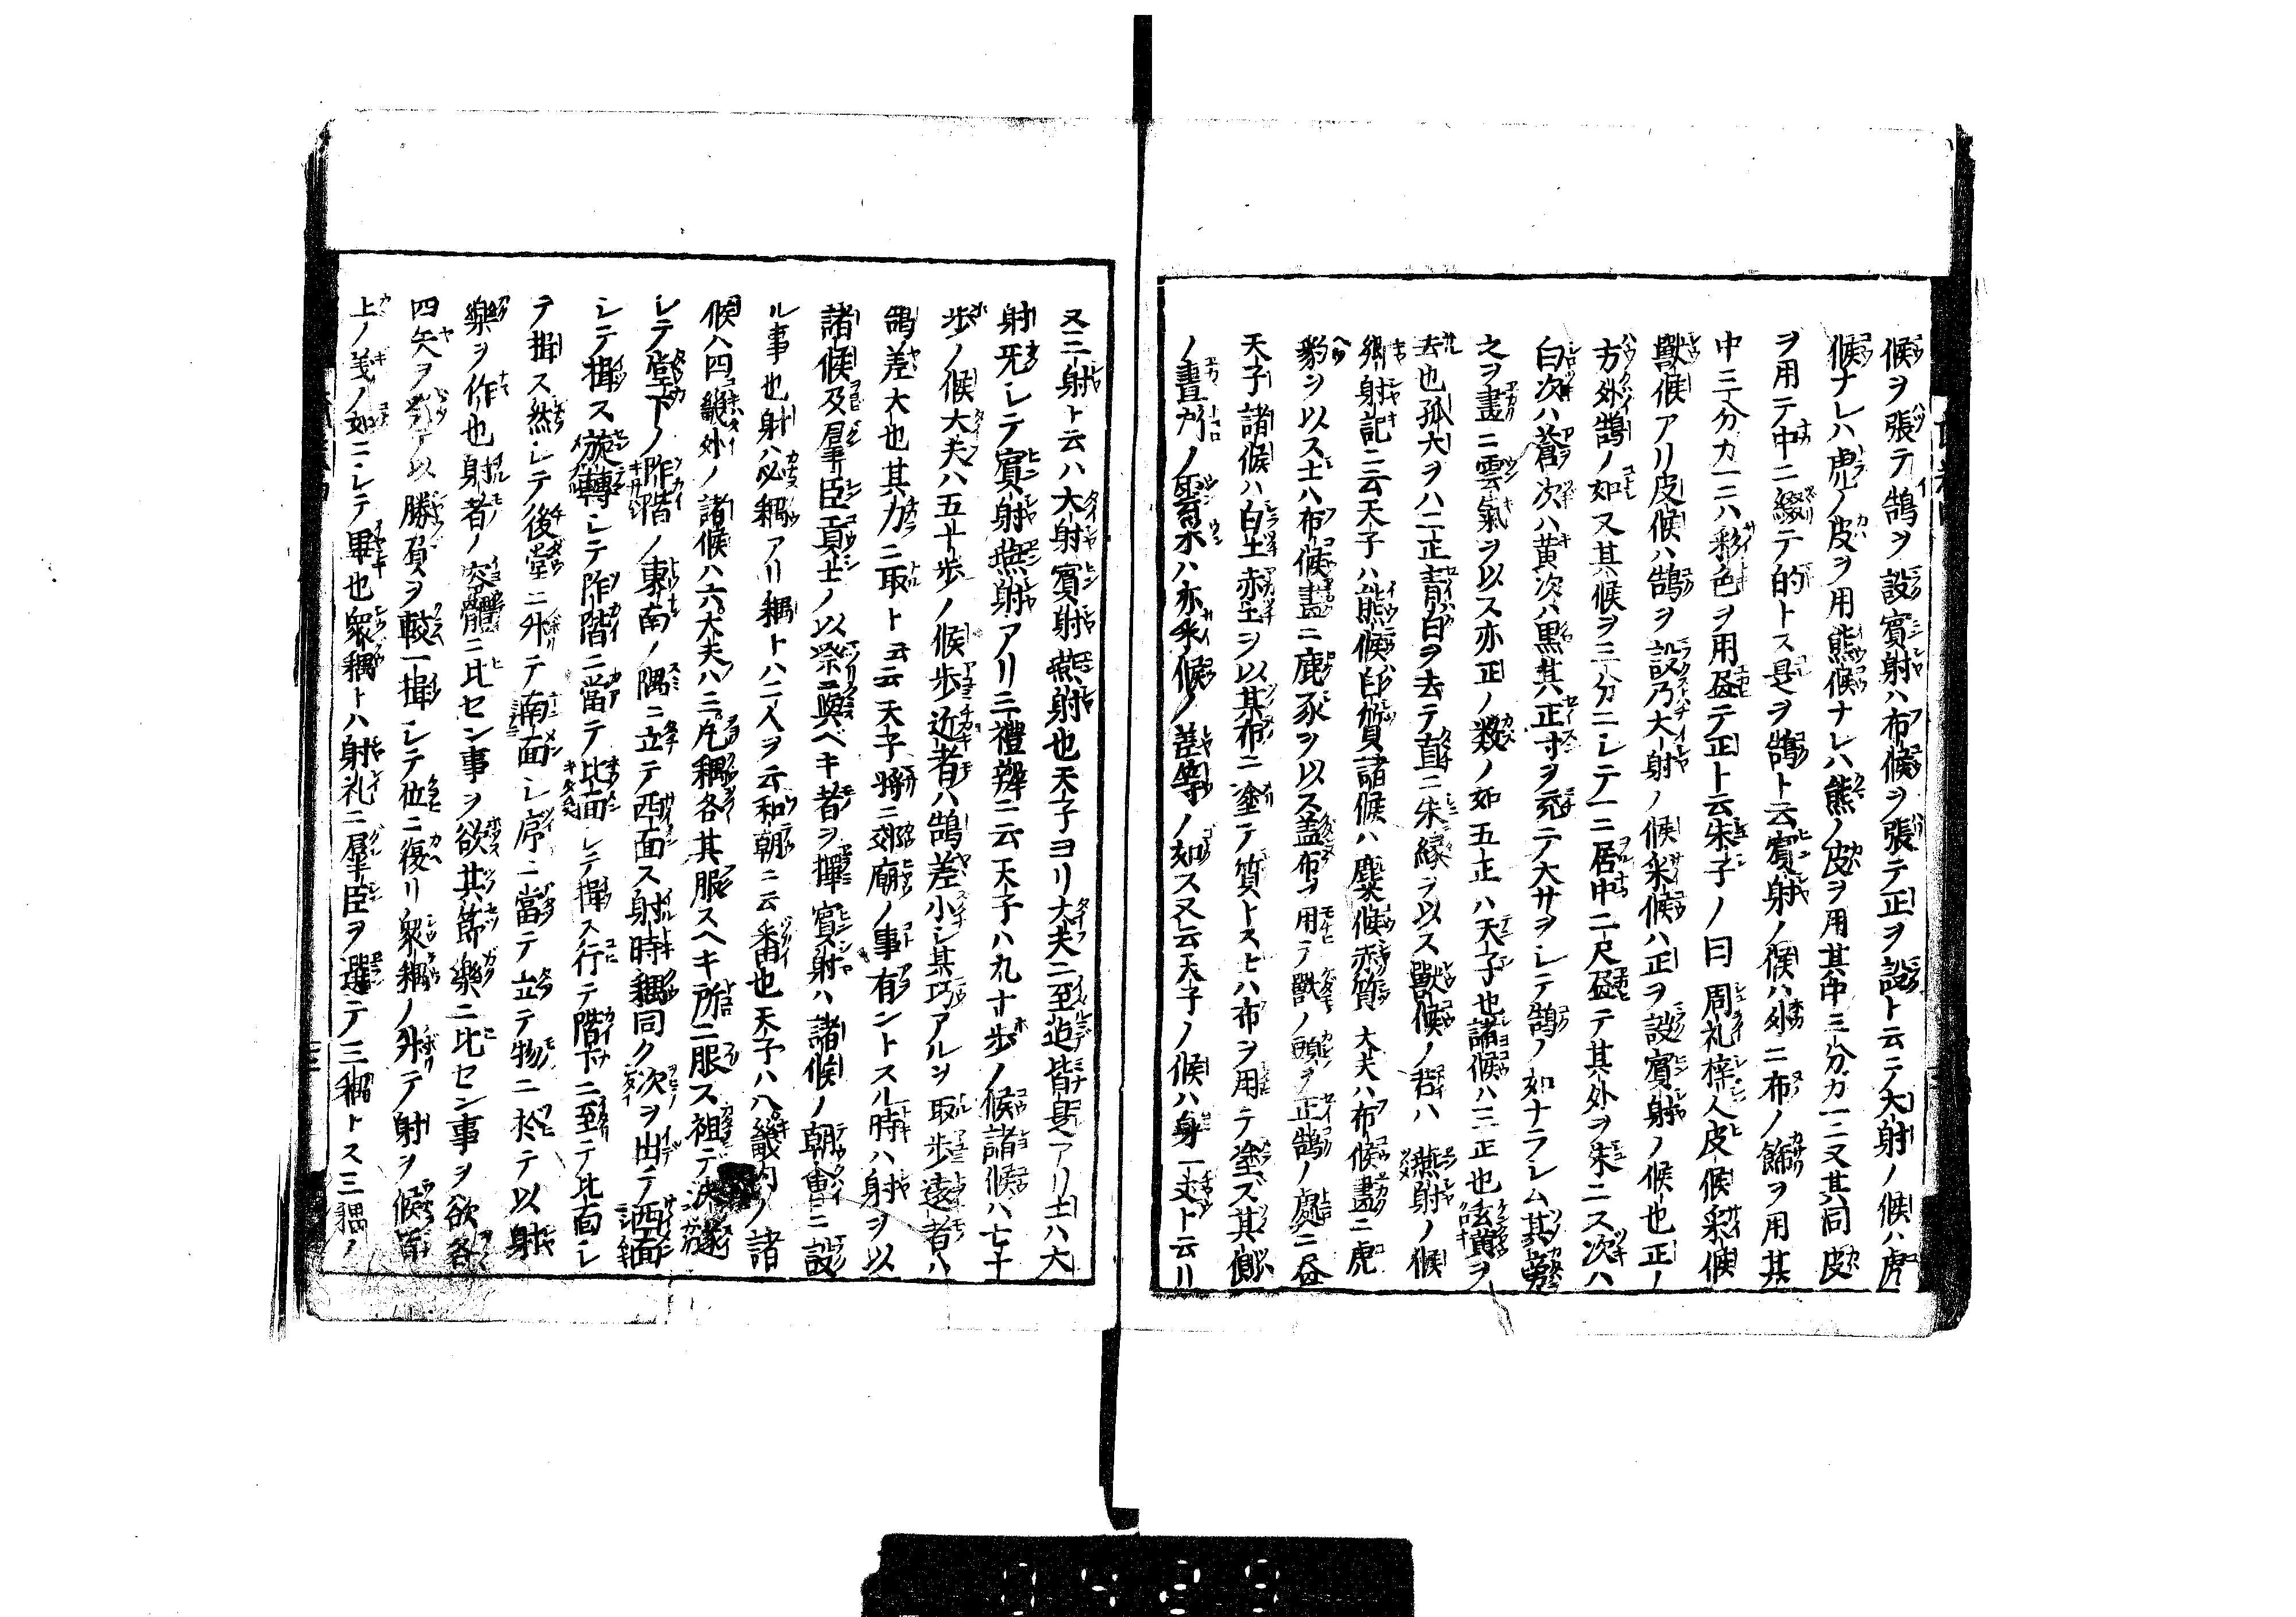 候ヲ張テ鵠ヲ設賓射ハ布候ヲ張テ正ヲ設ト云ニノ大射ノ候ハ虎
候ナレハ虎ノ皮ヲ用熊候ナレハ熊ノ皮ヲ用其中三分カ一ニ又其同皮
ヲ用テ中ニ綴テ的トス是ヲ鵠ト云賓射ノ候ハ外ニ布ノ飾ヲ用其
中三分カ一ニハ彩色ヲ用昼テ正ト云朱子ノ曰周礼梓人皮候采候
獸候アリ皮候ハ鵠ヲ設乃大射ノ候采候ハ正ヲ設賓射ノ候也正ノ
方外鵠ノ如又其候ヲ三分ニシテ一ニ居中二尺畫テ其外ヲ朱ニス次ハ
白次ハ蒼次ハ黄次ハ黒其正寸ヲ充ニテ大サヲシテ鵠ノ如ナラシム其旁
之ヲ畫ニ雲氣ヲ以ス亦正ノ数ノ如五正ハ天子也諸候ハ三正也玄黄ヲ
去也孤大ヲハ二正青白ヲ去テ直ニ朱緑ヲ以ス獸候ノ若ハ燕射ノ候
郷射記ニ云天子ハ熊候白質諸候ハ麋候赤質大夫ハ布候畫ニ虎
豹ヲ以ス士ハ布候畫ニ鹿豕ヲ以ス盖布ヲ用テ獸ノ頭ヲ正鵠ノ處ニ昼
天子諸候ハ白土赤土ヲ以其布ニ塗テ質トス士ハ布ヲ用テ塗ス其側
ノ畫所ノ雲氣ハ亦采候ノ差等ノ如ス又云天子ノ候ハ身一丈ト云リ
又三射ト云ハ大射賓射燕射也天子ヨリ大夫ニ至迄皆是アリ士ハ大
射死シテ賓射燕射アリ三禮辨ニ云天子ハ九十歩ノ候諸候ハ七十
歩ノ候大夫ハ五十歩ノ候歩近者ハ鵠差小シ其巧アルヲ取歩遠者ハ
鵠差大也其力ニ取ト云云天子將ニ郊廟ノ事有ントスル時ハ射ヲ以
諸候及羣臣貢士ノ以祭ニ與ベキ者ヲ擇賓射ハ諸候ノ朝會ニ設
ル事也射ハ必耦アリ耦トハ二人ヲ云和朝ニ云番也天子ハ八畿内ノ諸
候ハ四畿外ノ諸候ハ六大夫ハ三凡耦各其服スヘキ所ニ服ス袒テ決遂
シテ堂下ノ阼階ノ東南ノ隅ニ立テ西面ス射時耦同ク次ヲ出テ西面
シテ揖ス旋轉シテ阼階ニ當テ北面シテ揖ス行テ階下ニ至テ北面シ
テ揖ス然シテ後堂ニ升テ南面シ序ニ當テ立テ物ニ於テ以射
樂ヲ作也射者ノ容體ニ比セン事ヲ欲其節樂ニ比セン事ヲ欲各
四矢ヲ以勝負ヲ較一揖シテ位ニ復リ衆耦ノ升テ射ヲ候皆
上ノ義ノ如ニシテ畢也衆耦トハ射礼ニ羣臣ヲ選テ三耦トス三耦ノ